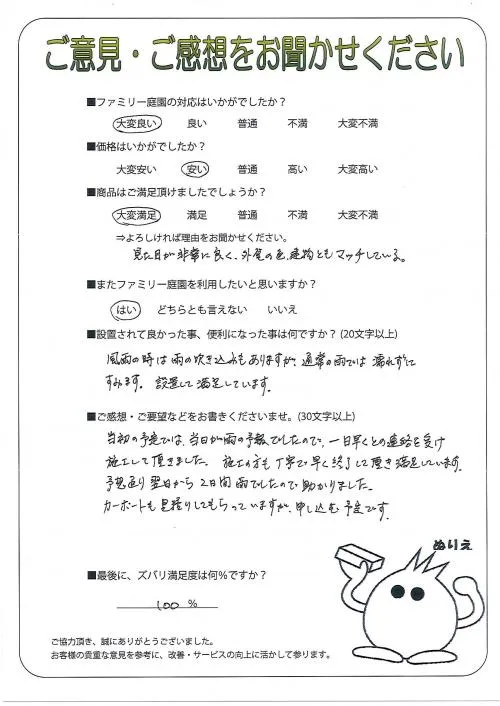 ご意見・ご感想をお聞かせください
■ファミリー庭園の対応はいかがでしたか？
大変良い 良い 普通 不満 大変不満
■価格はいかがでしたか？
大変安い 安い 普通 高い 大変高い
■商品はご満足頂けましたでしょうか？
大変満足 満足 普通 不満 大変不満
⇒よろしければ理由をお聞かせください。
見た目が非常に良く、外見の色、建物ともマッチしている。
■またファミリー庭園を利用したいと思いますか？
はい どちらとも言えない いいえ
■設置されて良かった事、便利になった事は何ですか？(20文字以上)
風雨の時は雨の吹き込みもありますが、通常の雨では濡れずに
すみます。設置して満足しています。
■ご感想・ご要望などをお書きくださいませ。(30文字以上)
当初の予定では、当日が雨の予報でしたので、一日早くとの連絡を受け
施工して頂きました。施工の方も丁寧で早く終了して頂き満足しています。
予想通り翌日から2日間雨でしたので助かりました。
カーポートも見積りしてもらっていますが、申し込む予定です。
ぬりえ
■最後に、ズバリ満足度は何％ですか？
100 %
ご協力頂き、誠にありがとうございました。
お客様の貴重な意見を参考に、改善・サービスの向上に活かして参ります。